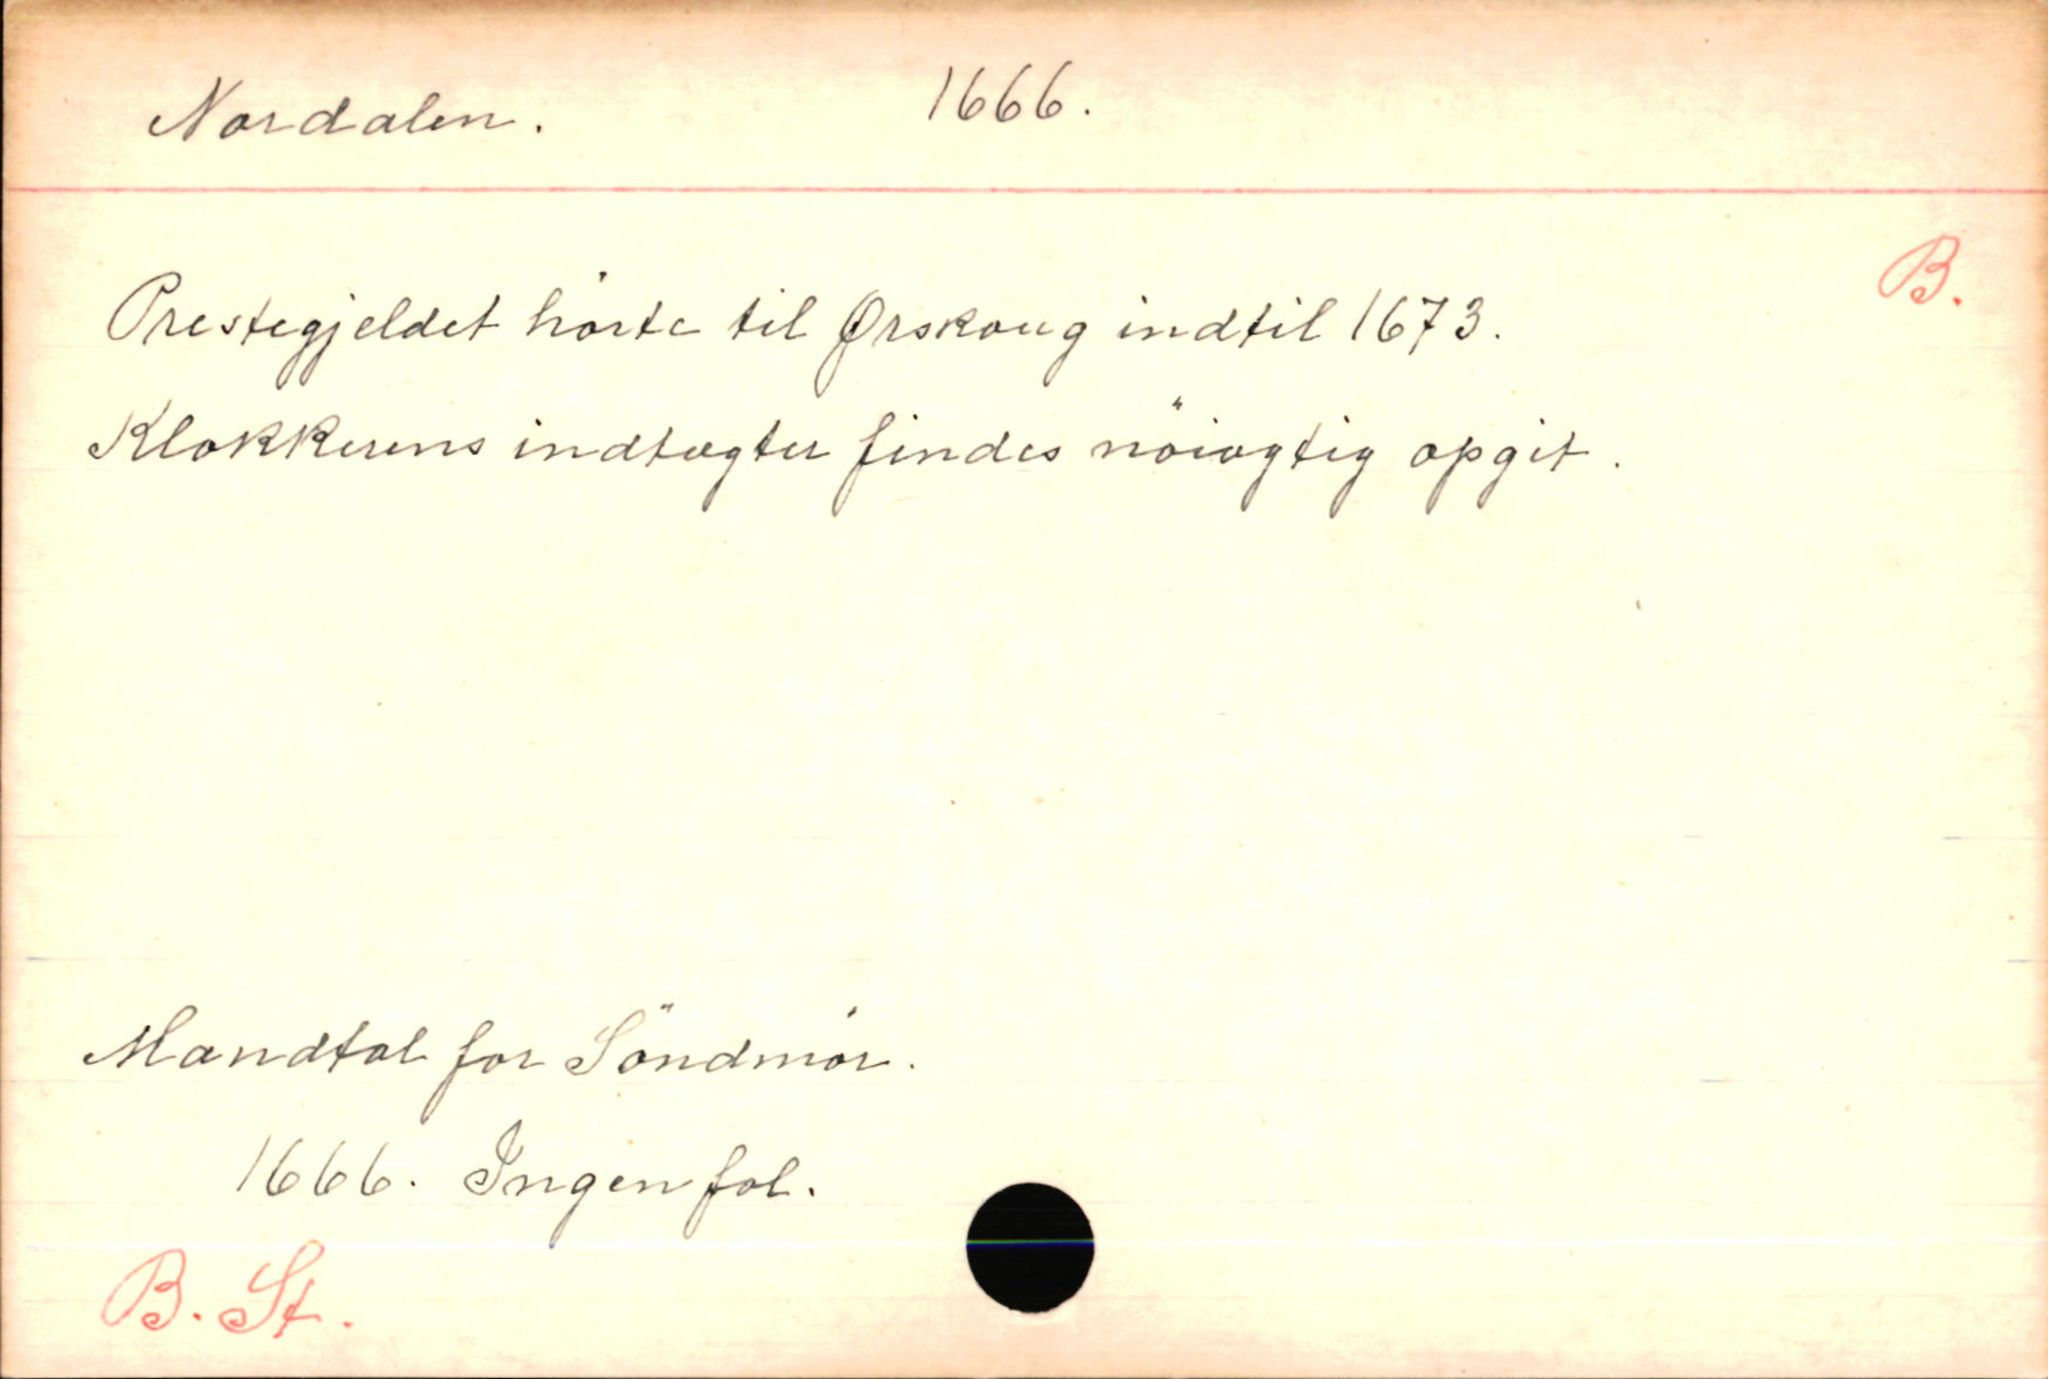 Nordalen. 1666.
B.
Prestegjeldet hörte til Ørskoug indtil 1673.
Klokkerens indtægter findes nöiagtig opgit.
Mandtal for Söndmör.
1666. Ingen fol.
B. St.